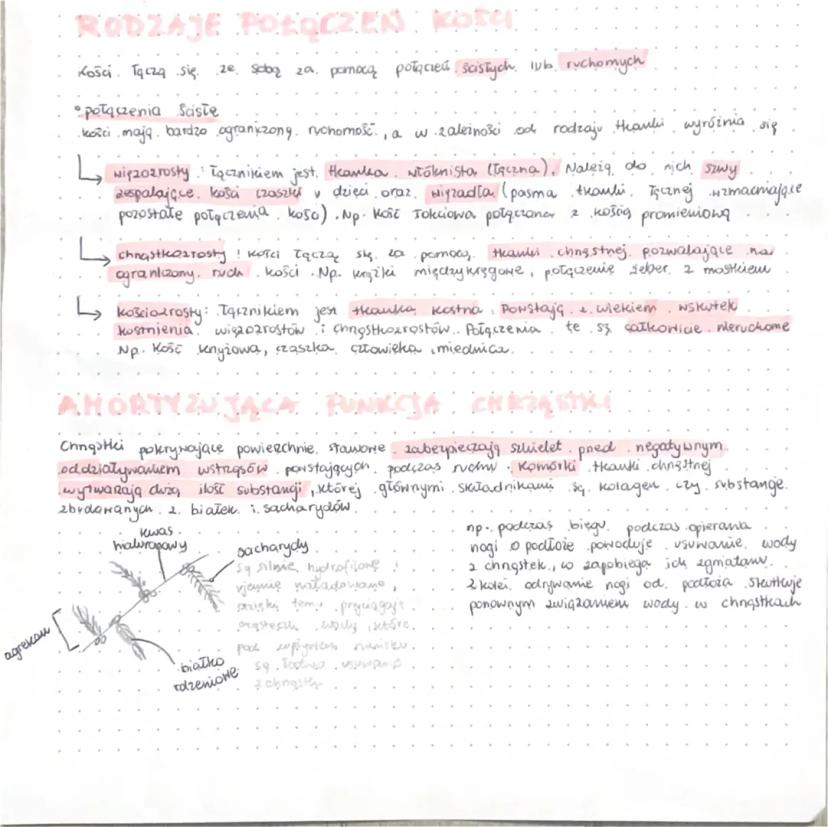 RODZAJE POŁĄCZEŃ KOŚCI
Kości łączą się ze sobą za pomocą połączeń ścisłych lub ruchomych
• połączenia ścisłe
kości mają bardzo ograniczoną ruchomość, a w zależności od rodzaju tkanki wyróżnia się
więzozrosty: łącznikiem jest tkanka włóknista (łączna). Należą do nich szwy
zespalające kości czaszki u dzieci oraz więzadła (pasma tkanki łącznej wzmacniające
pozostałe połączenia kości). Np. kość łokciowa połączona z kością promieniową
chrząstkozrosty: kości łączą się za pomocą tkanki chrzęstnej pozwalające na
ograniczony ruch kości. Np. krążki międzykręgowe, połączenie żeber z mostkiem
kościozrosty: łącznikiem jest tkanka kostna. Powstają z wiekiem wskutek
kostnienia więzozrostów i chrząstkozrostów. Połączenia te są całkowicie nieruchome
Np. kość krzyżowa, czaszka człowieka, miednica.
AMORTYZUJĄCA FUNKCJA CHRZĄSTKI
Chrząstki pokrywające powierzchnie stawowe zabezpieczają szkielet przed negatywnym
oddziaływaniem wstrząsów powstających podczas ruchu. Komórki tkanki chrzęstnej
wytwarzają dużą ilość substancji, której głównymi składnikami są kolagen czy substancje
zbudowanych z białek i sacharydów.
kwas
hialuronowy
sacharydy
są silnie hydrofilowe i
ujemnie naładowane,
dzięki temu przyciągają
cząsteczki wody, które
pod wpływem nacisku
są łatwo usuwane
z chrząstki
agrekan
białko
rdzeniowe
np. podczas biegu podczas opierania
nogi o podłoże powoduje usuwanie wody
z chrząstek, co zapobiega ich zgniataniu.
Z kolei odrywanie nogi od podłoża skutkuje
ponownym związaniem wody w chrząstkach